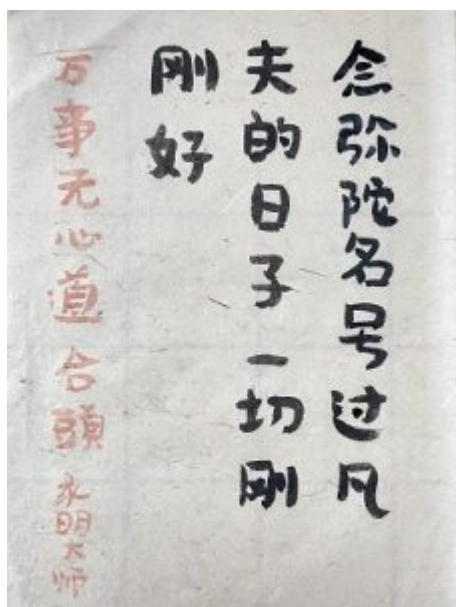 念弥陀名号过凡
夫的日子一切刚
刚好
万事无心道合頭
永明大师